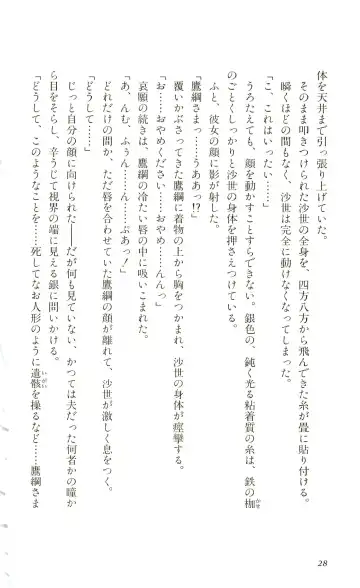 体を天井まで引っ張り上げていた。
そのまま叩きつけられた沙世の全身を、四方八方から飛んできた糸が畳に貼り付ける。
瞬くほどの間もなく、沙世は完全に動けなくなってしまった。
「こ、これはいったい……」
うろたえても、顔を動かすことすらできない。銀色の、鈍く光る粘着質の糸は、鉄の枷かせ
のごとくしっかりと沙世の身体を押さえつけている。
ふと、彼女の顔に影が射した。
「鷹綱さまっ……うああっ!?」
覆いかぶさってきた鷹綱に着物の上から胸をつかまれ、沙世の身体が痙攣する。
「お……おやめください……おやめ……んんっ」
哀願の続きは、鷹綱の冷たい唇の中に吸いこまれた。
「あ、んむ、ふぅん……んん……ぷあっ！」
どれだけの間か、ただ唇を合わせていた鷹綱の顔が離れて、沙世が激しく息をつく。
「どうして……」
じっと自分の顔に向けられた――だが何も見ていない、かつては夫だった何者かの瞳か
ら目をそらし、辛うじて視界の端に見える銀に問いかける。
「どうして、このようなことを……死してなお人形のように遺骸いがいを操るなど……鷹綱さま
28